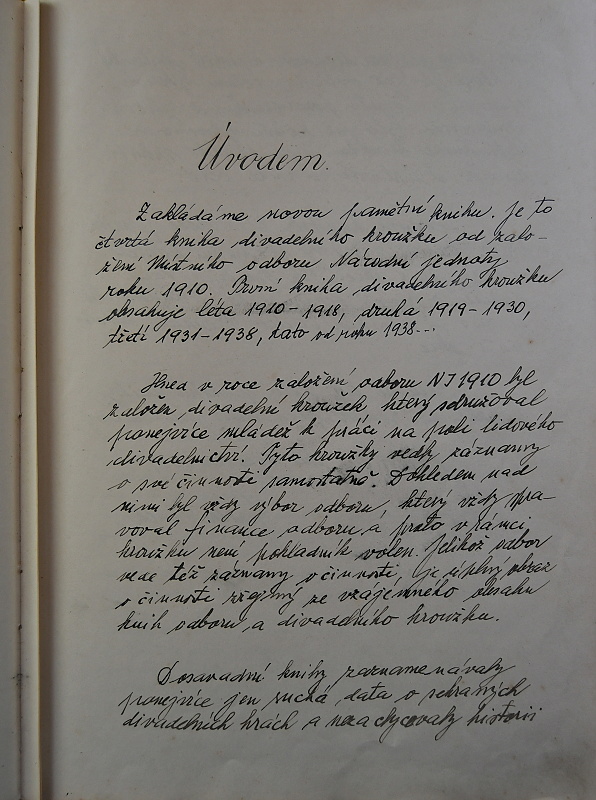 Úvodem.
Zakládáme novou pamětní knihu. Je to
čtvrtá kniha divadelního kroužku od zalo-
žení Místního odboru Národní jednoty
roku 1910. První kniha divadelního kroužku
obsahuje léta 1910-1918, druhá 1919-1930,
třetí 1931-1938, tato od roku 1938--.
Hned v roce založení odboru NJ 1910 byl
založen divadelní kroužek, který sdružoval
ponejvíce mládež k práci na poli lidového
divadelnictví. Tyto kroužky vedly záznamy
o své činnosti samostatně. Dohledem nad
nimi byl vždy výbor odboru, který vždy spra-
voval finance odboru a proto v rámci
kroužku není pokladník volen. Jelikož odbor
vede též záznamy o činnosti, je úplný obraz
o činnosti zřejmý ze vzájemného obsahu
knih odboru a divadelního kroužku.
Dosavadní knihy zaznamenávaly
ponejvíce jen suchá data o sehraných
divadelních hrách a nezachycovaly historii